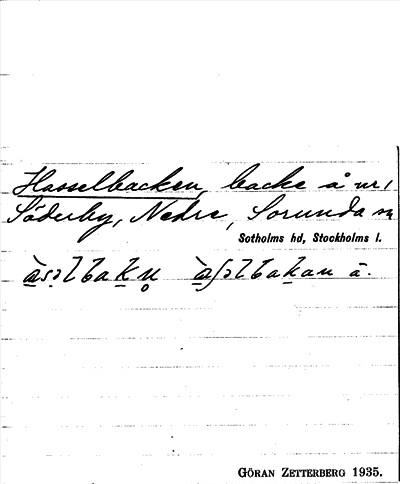 Hasselbacken, backe å nr 1
Söderby, Nedre, Sorunda sn
Sotholms hd, Stockholms l.
GÖRAN ZETTERBERG 1935.